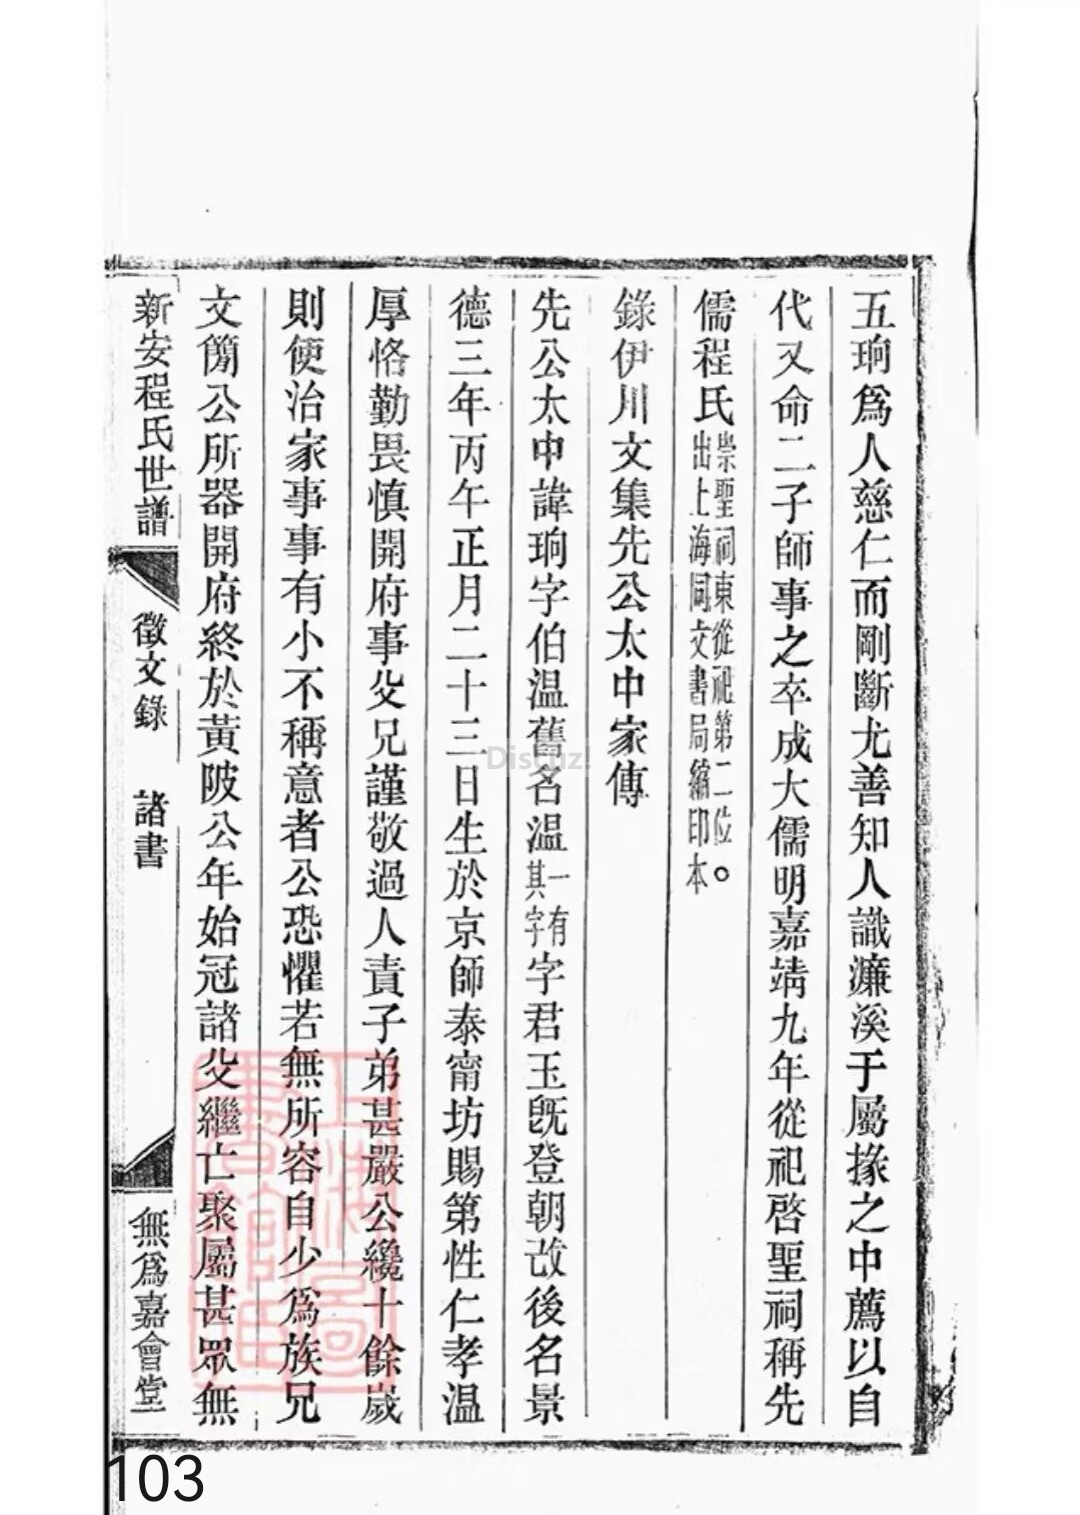 五珦爲人慈仁而剛斷尤善知人識濂溪于屬掾之中薦以自
代又命二子師事之卒成大儒明嘉靖九年從祀啓聖祠稱先
儒程氏崇聖祠東從祀第二位。出上海同文書局縮印本
錄伊川文集先公太中家傳
先公太中諱珦字伯温舊名温一有其字字君玉旣登朝改後名景
德三年丙午正月二十三日生於京師泰甯坊賜第性仁孝温
厚恪勤畏慎開府事父兄謹敬過人責子弟甚嚴公纔十餘歲
則使治家事事有小不稱意者公恐懼若無所容自少爲族兄
文簡公所器開府終於黃陂公年始冠諸父繼亡聚屬甚眾無
新安程氏世譜 徵文錄 諸書 無爲嘉會堂
上海圖書館藏
Discuz!
103